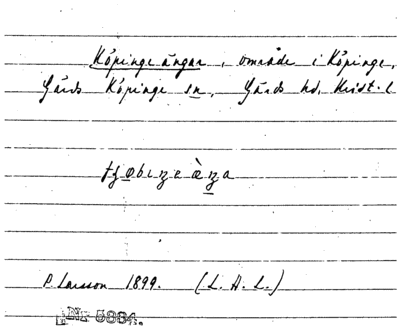 Köpinge ängar, område i Köpinge,
Gärds Köpinge sn, Gärds hd, Krist. l
P. Larsson 1899. (L. A. L.)
Nr 5884.